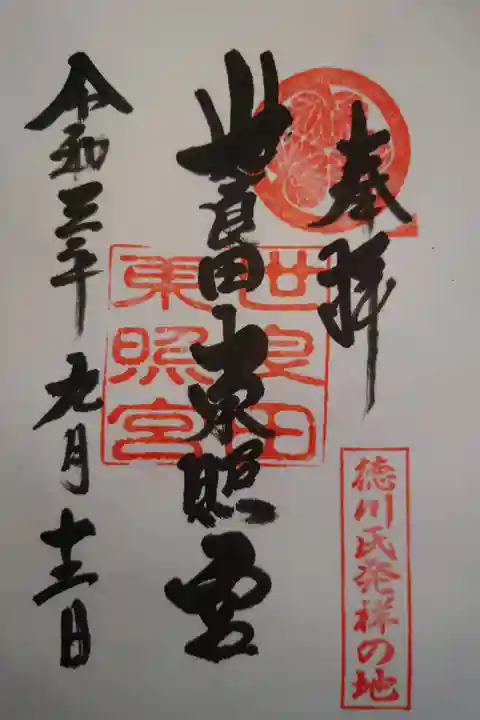 奉拝
徳川氏発祥の地
世良田東照宮
世良田
東照宮
令和三年九月十三日